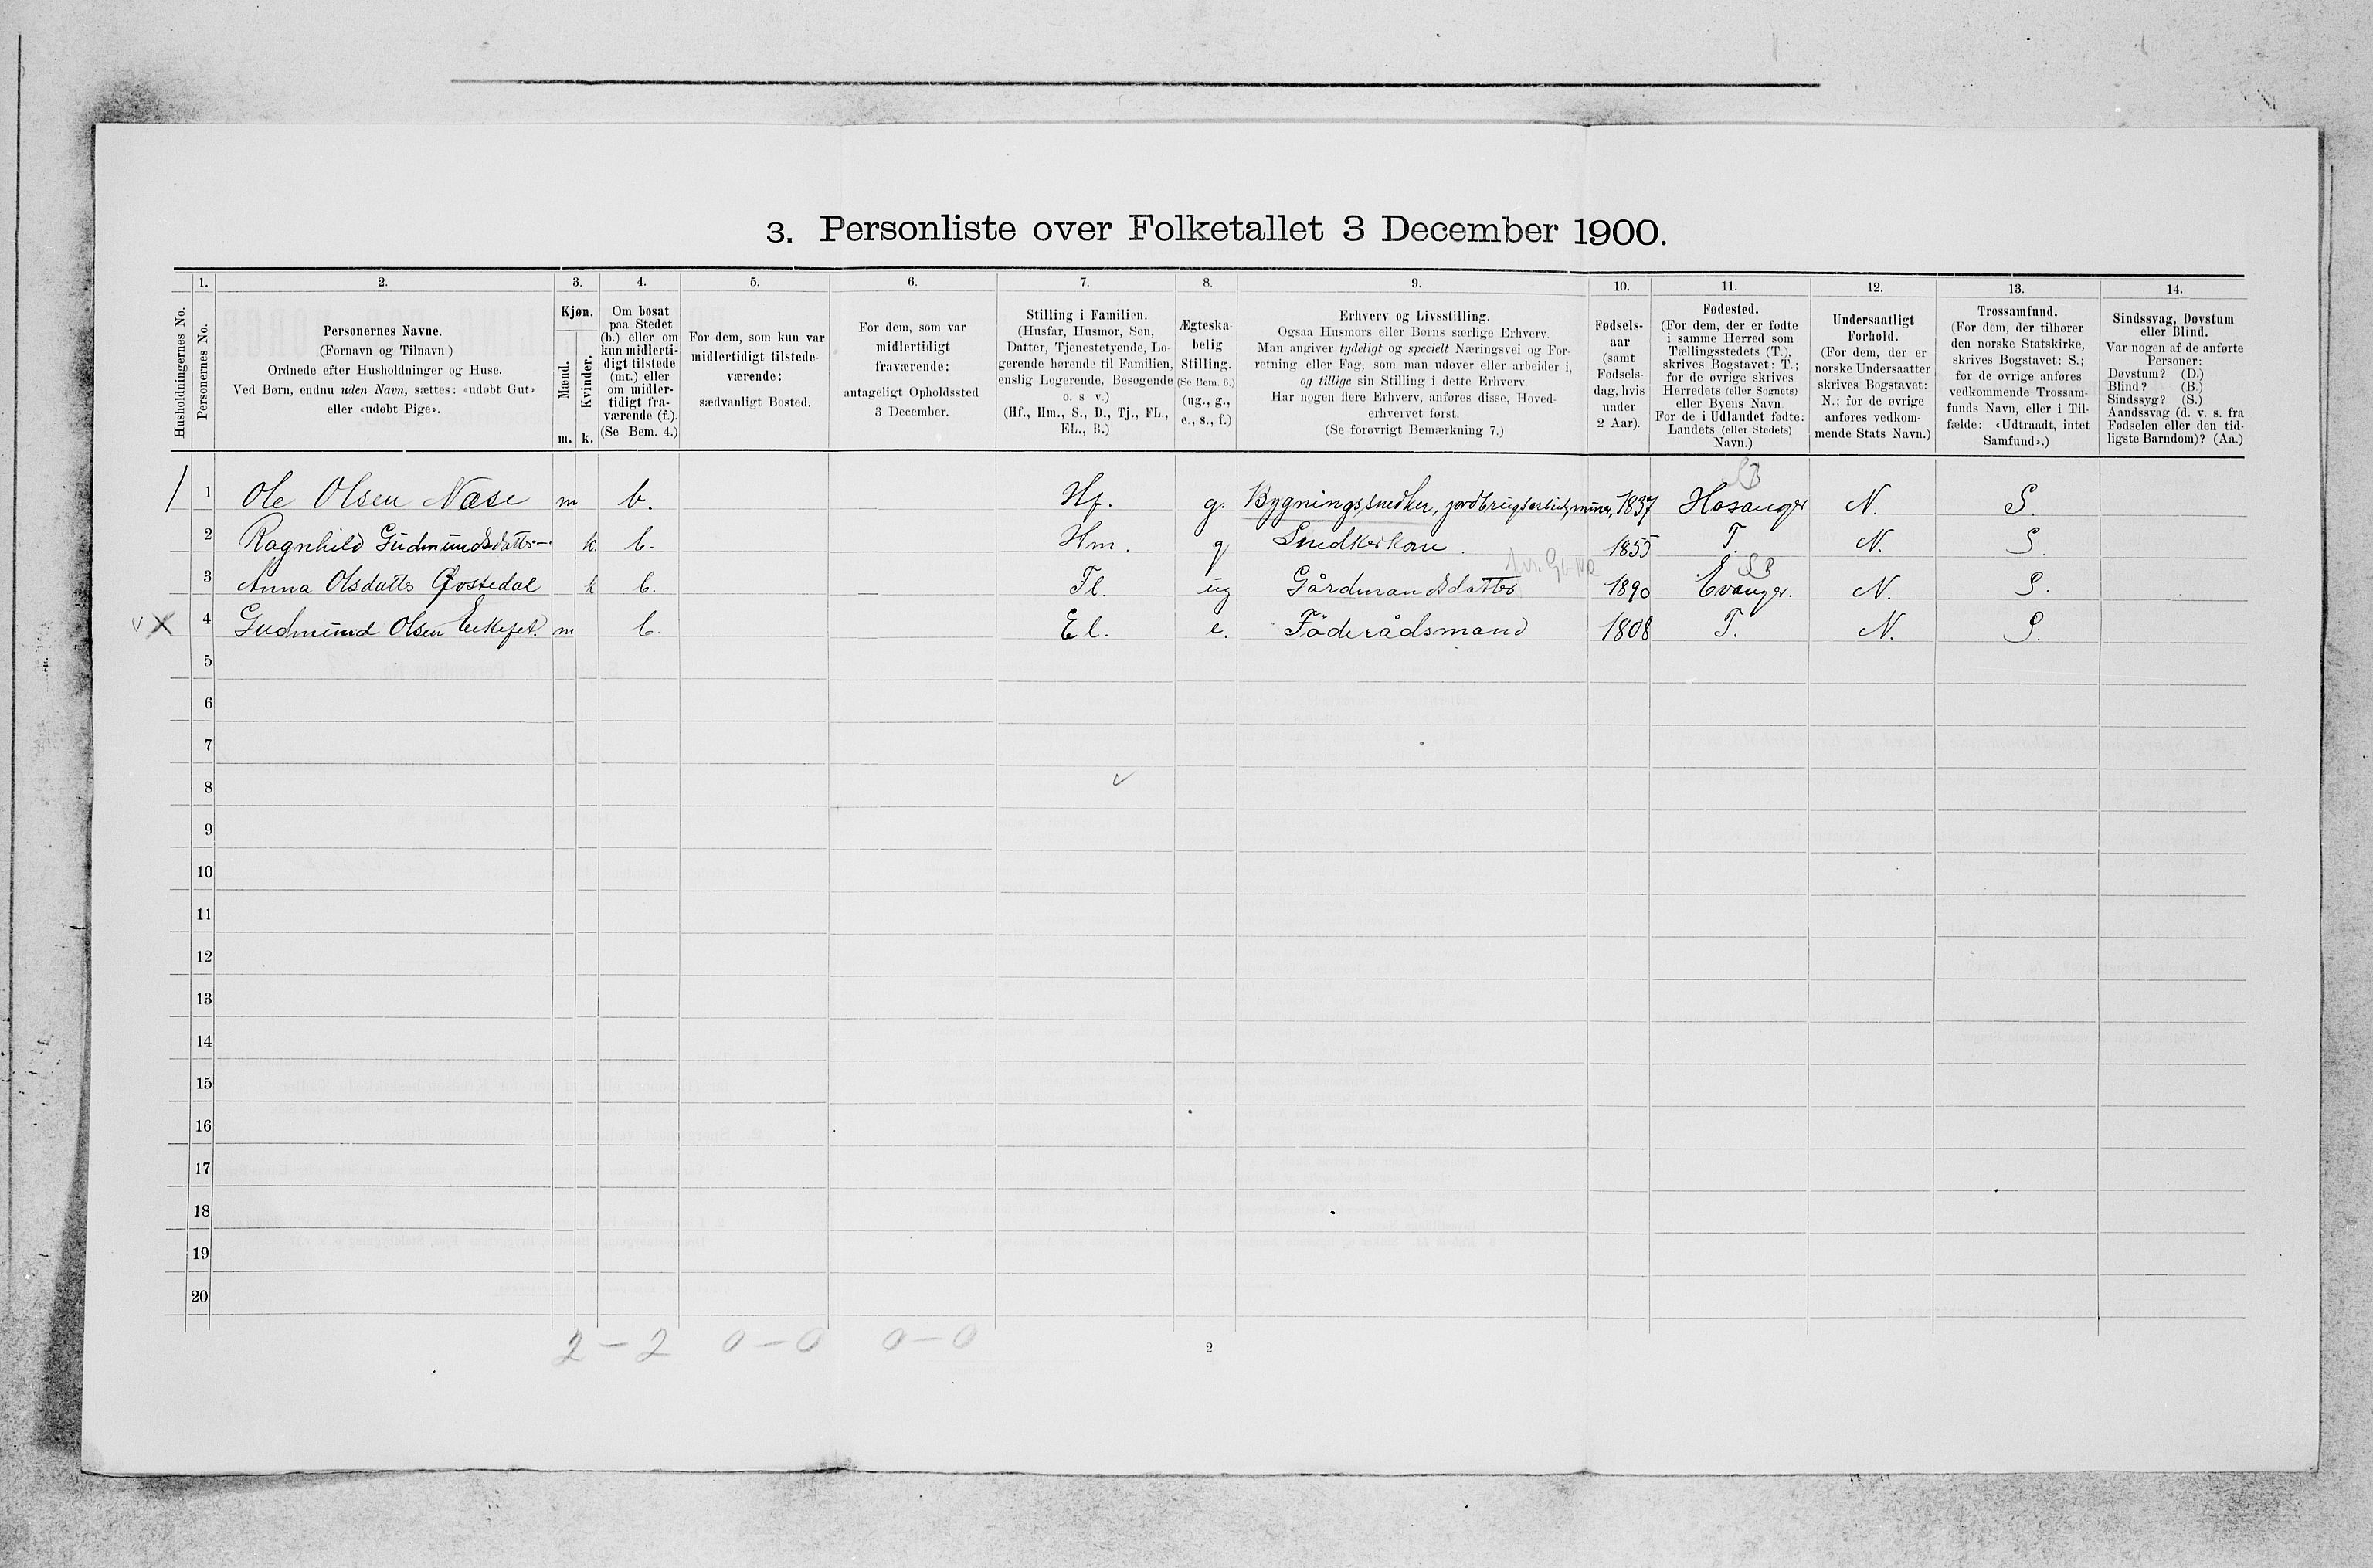 3. Personliste over Folketallet 3 December 1900.
1. 2. 3. 4. 5. 6. 7. 8. 9. 10. 11. 12. 13. 14.
Husholdningernes No.
Personernes No.
Personernes Navne.
(Fornavn og Tilnavn)
Ordnede efter Husholdninger og Huse.
Ved Børn, endnu uden Navn, sættes: «udøbt Gut»
eller «udøbt Pige».
Kjøn.
Mænd.
m.
Kvinder.
k.
Om bosat
paa Stedet
(b.) eller om
kun midlerti-
digt tilstede
(mt.) eller
om midler-
tidigt fra-
værende (f.).
(Se Bem. 4.)
For dem, som kun var
midlertidigt tilstede-
værende:
sædvanligt Bosted.
For dem, som var
midlertidigt
fraværende:
antageligt Opholdssted
3 December.
Stilling i Familien.
(Husfar, Husmor, Søn,
Datter, Tjenestetyende, Lo-
gerende hørende til Familien,
enslig Logerende, Besøgende
o. s v.)
(Hf., Hm., S., D., Tj., FL.,
EL., B.)
Ægteska-
belig
Stilling.
(Se Bem. 6.)
(ug., g.,
e., s., f.)
Erhverv og Livsstilling.
Ogsaa Husmors eller Børns særlige Erhverv.
Man angiver tydeligt og specielt Næringsvei og For-
retning eller Fag, som man udøver eller arbeider i,
og tillige sin Stilling i dette Erhverv.
Har nogen flere Erhverv, anføres disse, Hoved-
erhvervet først.
(Se forøvrigt Bemærkning 7.)
Fødsels-
aar
(samt
Fødsels-
dag, hvis
under
2 Aar).
Fødested.
(For dem, der er fødte
i samme Herred som
Tællingsstedets (T.),
skrives Bogstavet: T.;
for de øvrige skrives
Herredets (eller Sognets)
eller Byens Navn.
For de i Udlandet fødte:
Landets (eller Stedets)
Navn.)
Undersaatligt
Forhold.
(For dem, der er
norske Undersaatter
skrives Bogstavet:
N.; for de øvrige
anføres vedkom-
mende Stats Navn.)
Trossamfund.
(For dem, der tilhører
den norske Statskirke,
skrives Bogstavet: S.;
for de øvrige anføres
vedkommende Trossam-
funds Navn, eller i Til-
fælde: «Udtraadt, intet
Samfund».)
Sindssvag, Døvstum
eller Blind.
Var nogen af de anførte
Personer:
Døvstum? (D.)
Blind? (B.)
Sindssyg? (S.)
Aandssvag (d. v. s. fra
Fødselen eller den tid-
ligste Barndom)? (Aa.)
SB
1 Ole Olsen Næse m b. Hf. g. Bygningssnedker, 1837 Hosanger N. S.
2 Ragnhild Gudmundsdatter — k. b. Hm. g Snedkerkone. 1855 T. N. S.
SB
3 Anna Olsdatter k b. Fl. ug Gårdmandsdatter 1890 Evanger. N. S.
X 4 Gudmund Olsen m b. El. e. Föderådsmand 1808 T. N. S.
5
6
7
8
9
10
11
12
13
14
15
16
17
18
19
20
2 — 2 0 — 0 0 — 0
2